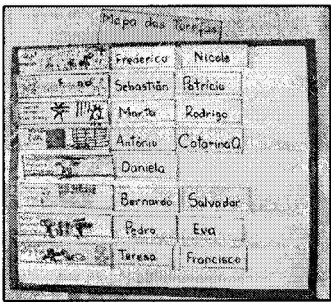 Mapa das Tarefas
Frederico Nicole
Sebastián Patrícia
Marta Rodrigo
António Catarina Q
Daniela
Bernardo Salvador
Pedro Eva
Teresa Francisco